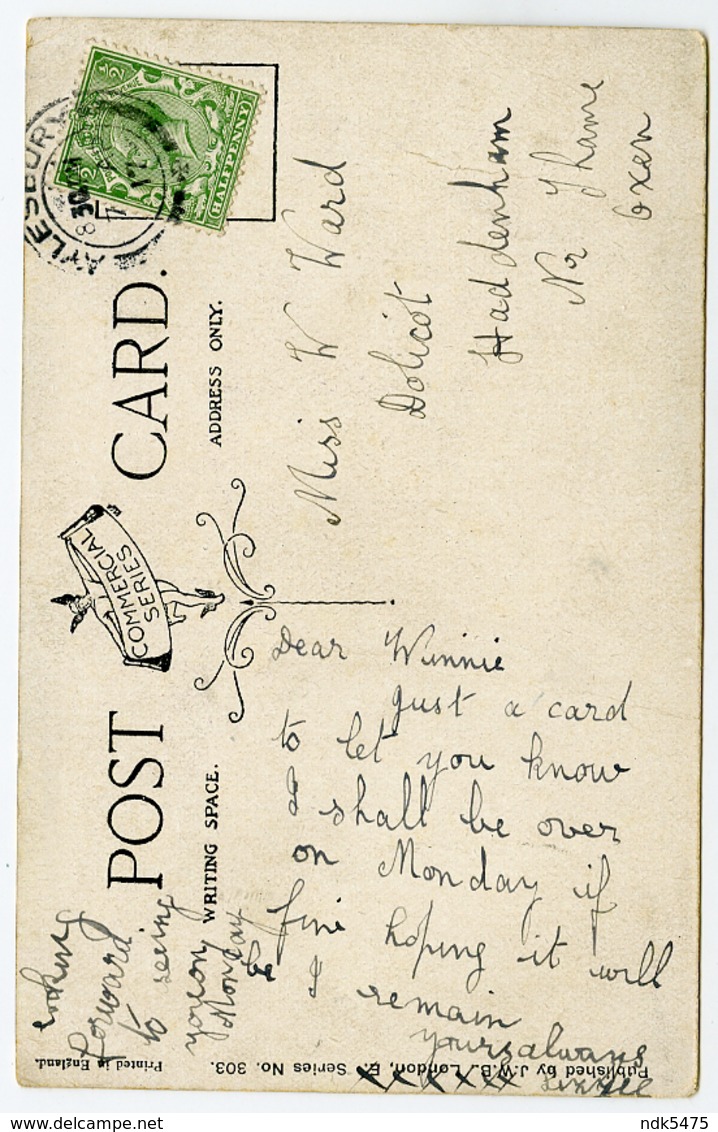 POST CARD.
COMMERCIAL
SERIES
WRITING SPACE.
ADDRESS ONLY.
½ ½
HALFPENNY
AYLESBURY
8 30
17
Dear Winnie
Just a card
to let you know
I shall be over
on Monday if
fine hoping it will
be
I remain
yours always
Lizzie
xxxxxx
looking
forward
to seeing
you on
Monday
Miss W Ward
Dolicot
Haddenham
Nr Thame
Oxen
Printed in England.
Published by J.W.B., London, E. Series No. 303.
ndk5475